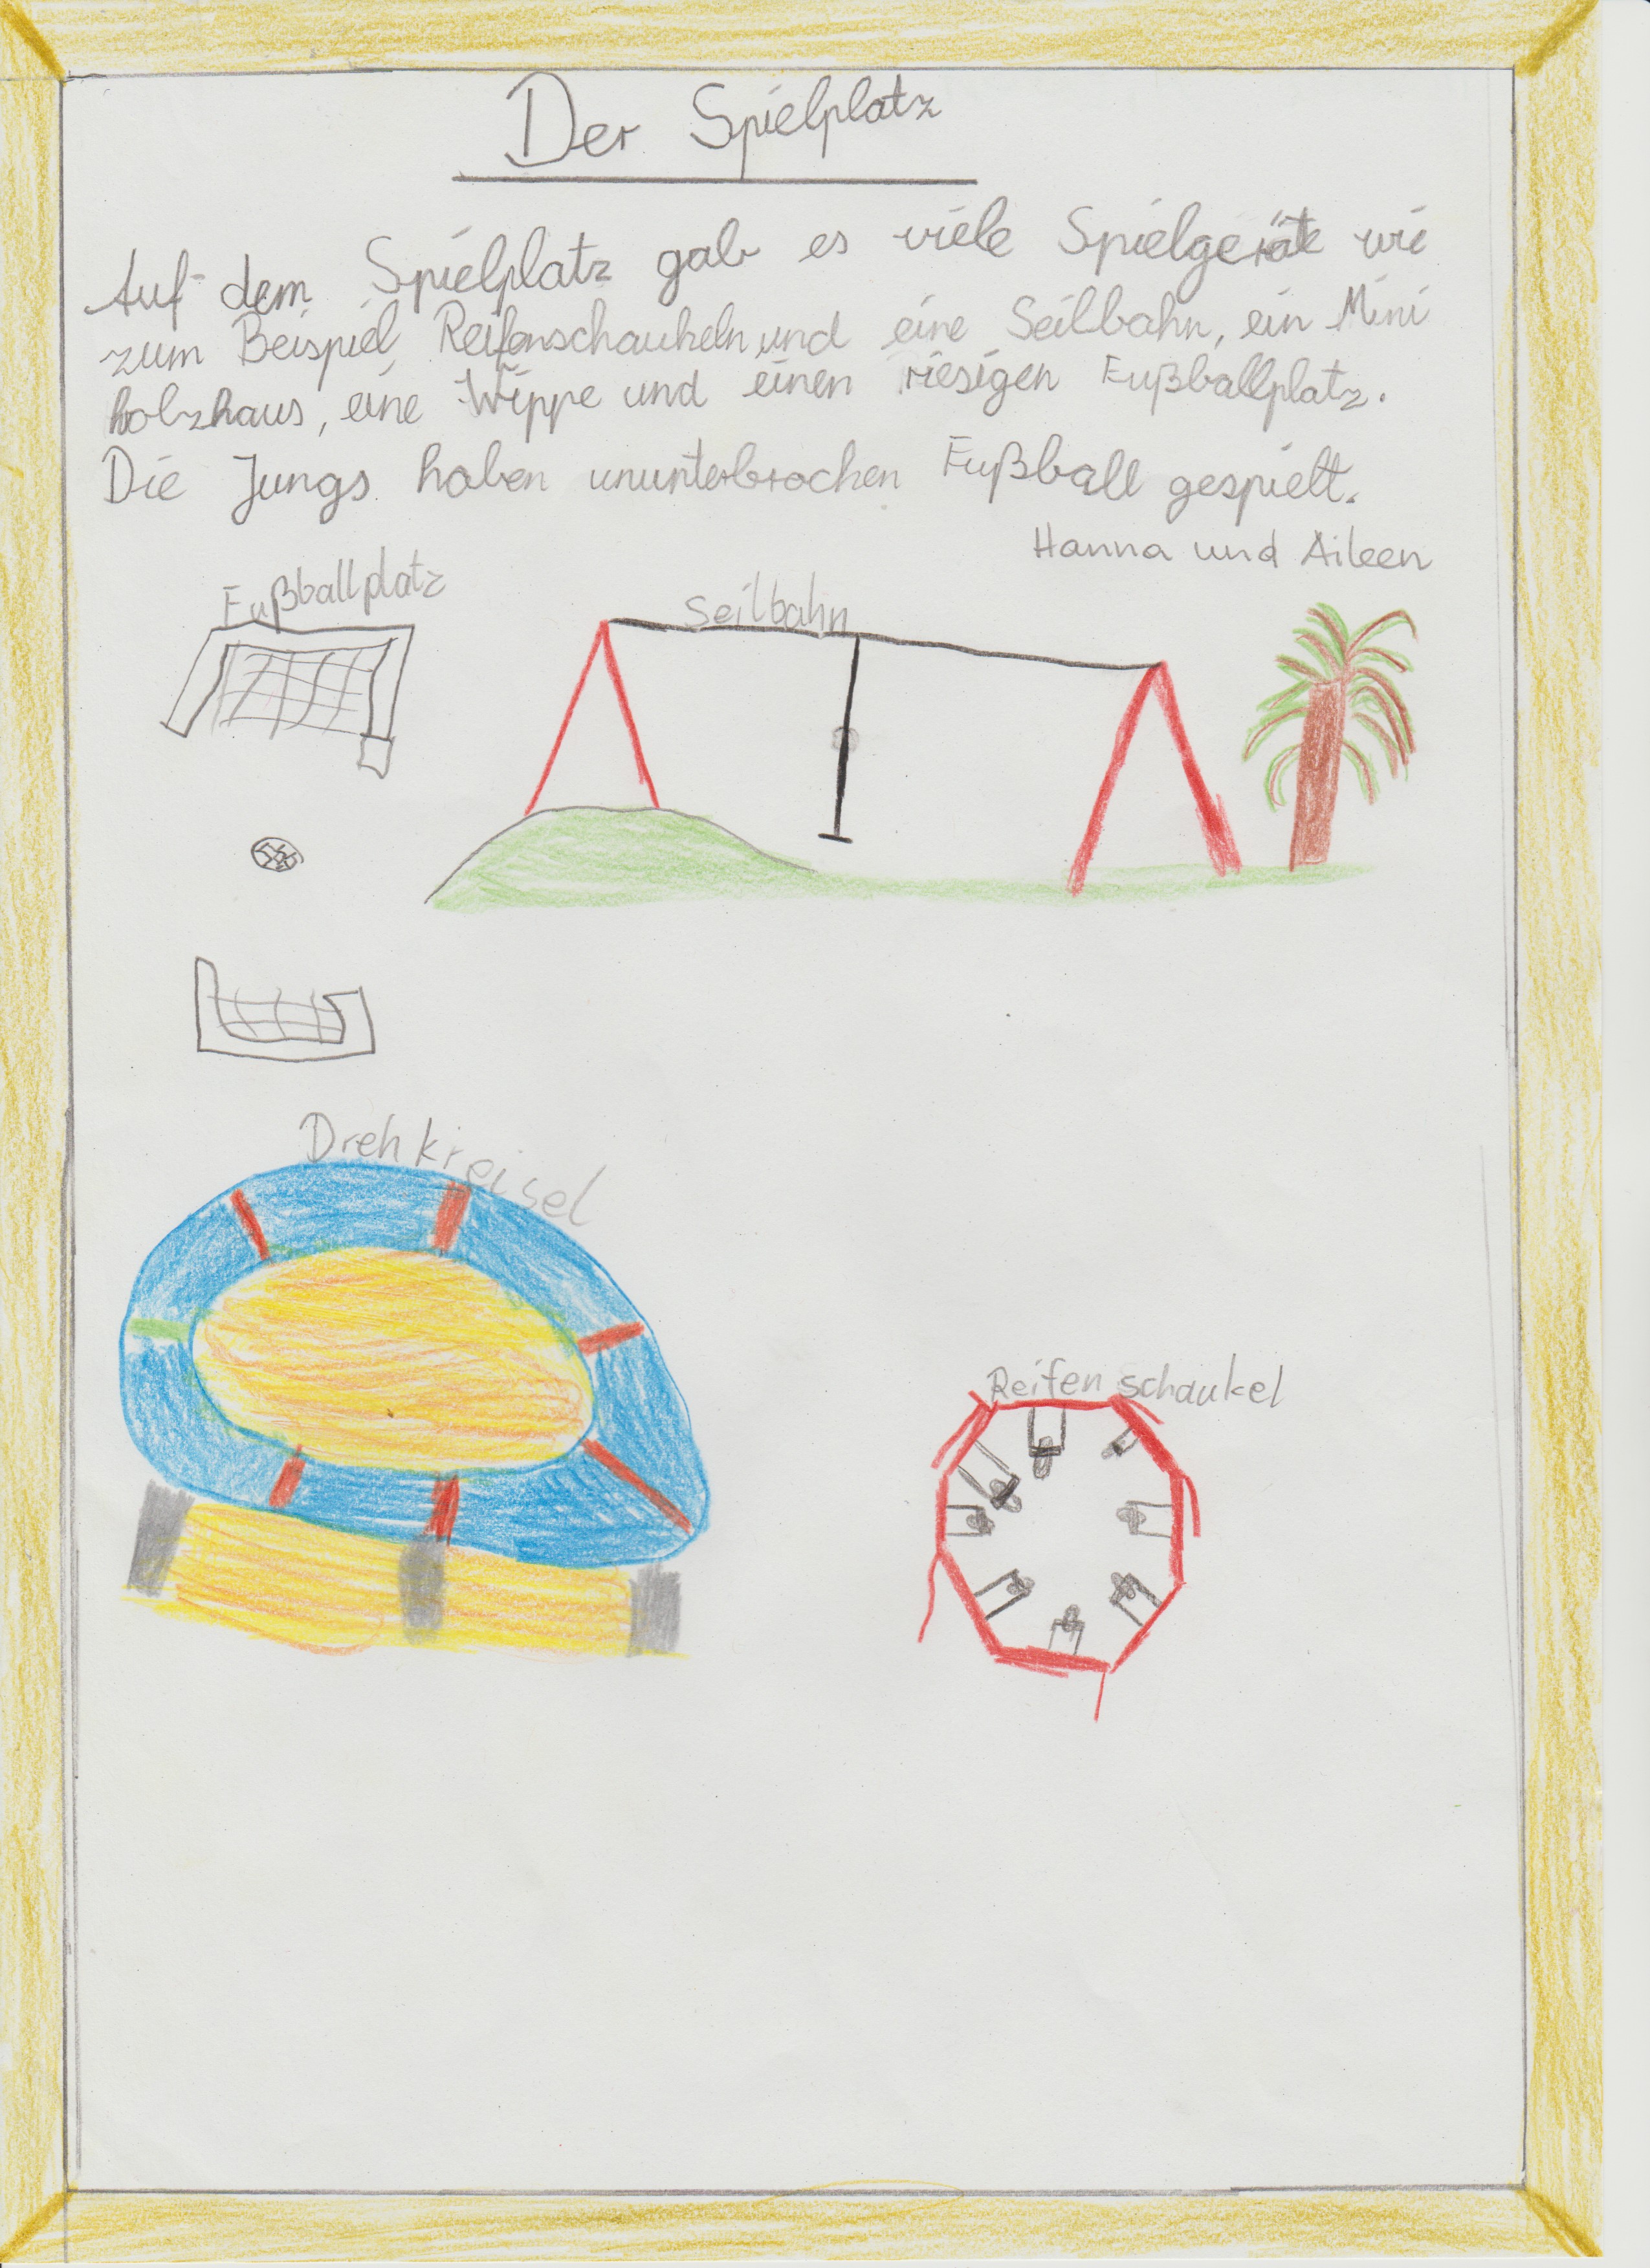 Der Spielplatz
Auf dem Spielplatz gab es viele Spielgeräte wie
zum Beispiel, Reifenschaukeln und eine Seilbahn, ein Mini
holzhaus, eine Wippe und einen riesigen Fußballplatz.
Die Jungs haben ununterbrochen Fußball gespielt.
Hanna und Aileen
Fußballplatz
Seilbahn
Drehkreisel
Reifenschaukel